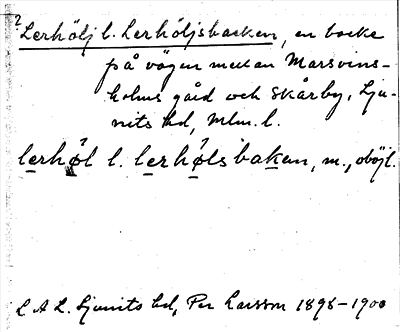 ? Lerhölj l. Lerhöljsbacken, en backe
på vägen mellan Marsvins-
holms gård och Skårby, Lju-
nits hd, Mlm. l.
lerhøl l. lerhølsbaken, m., oböjl.
L A L. Ljunits hd, Per Larsson 1898-1900